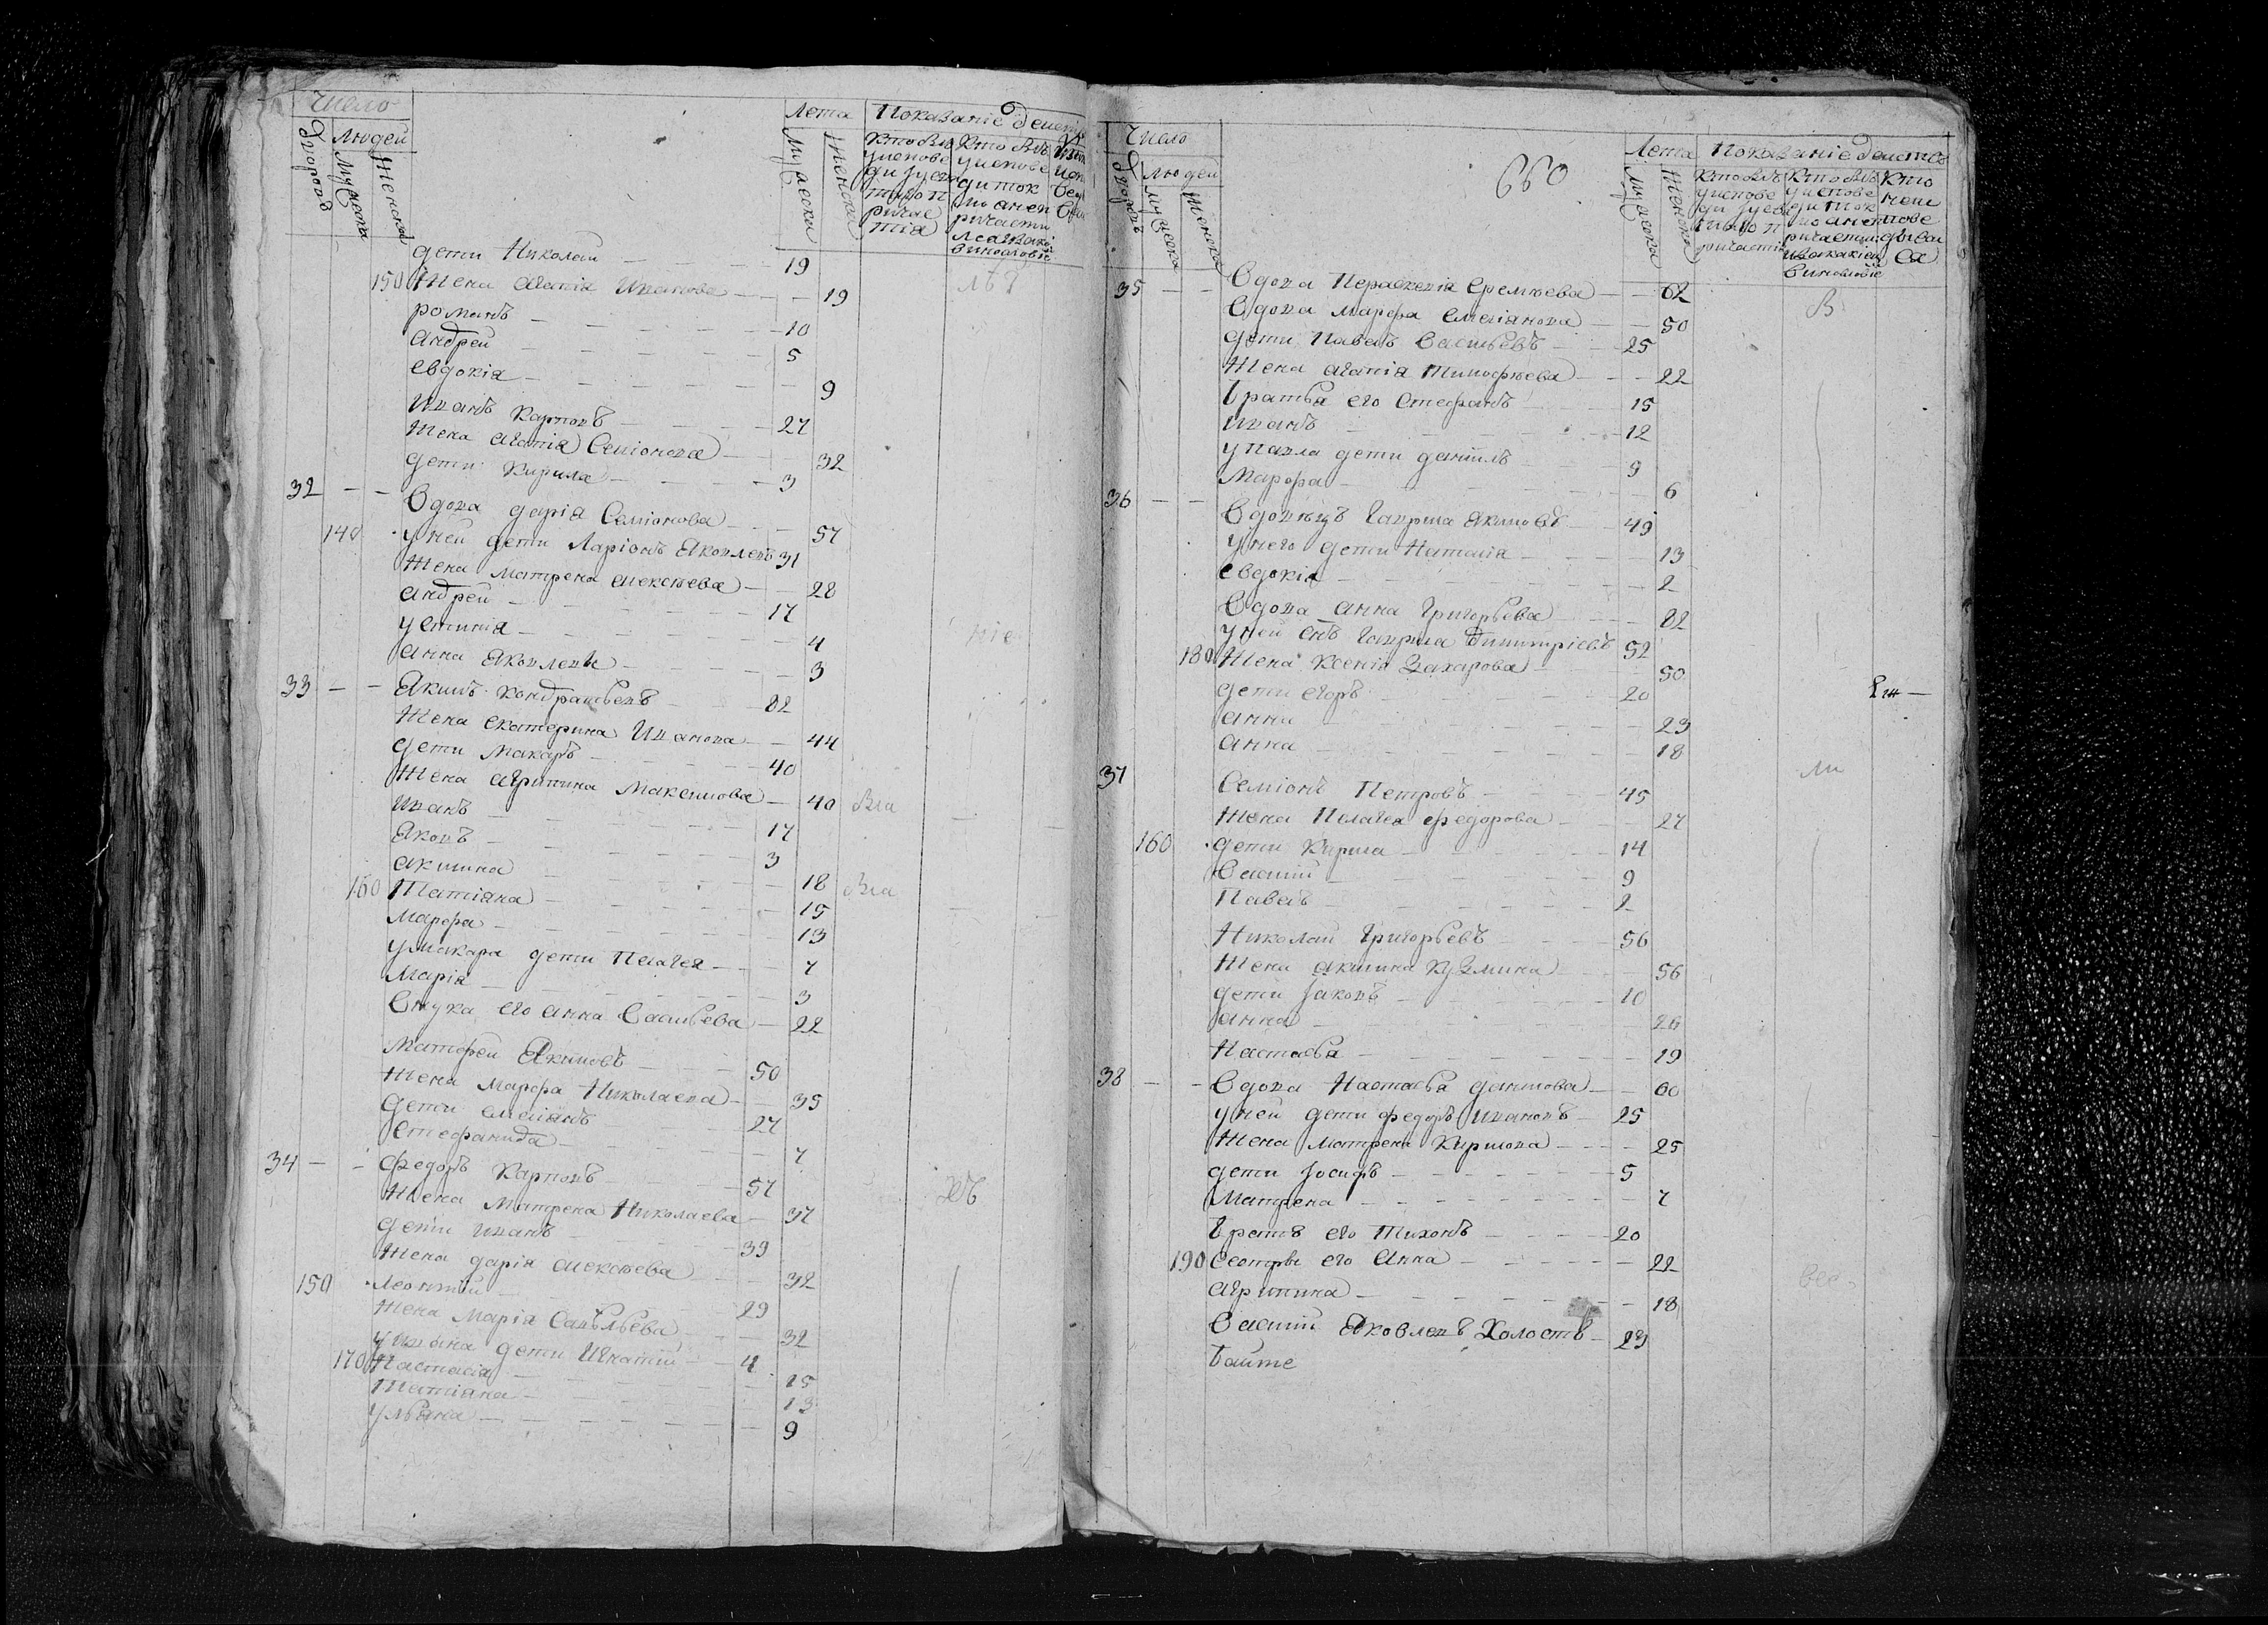 Число
Дворовъ
Людей
Мужеска
Женска
Лета
Мужеска
Женска
Показаніе действ
Кто былъ
у исповеди и святаго причастія
Кто былъ у исповеди
дети Николай 19
150 Жена Агапіа Иванова 19
романъ 10
Андрей 5
Евдокіа 9
Иванъ Карповъ 27
Жена Агапіа Семіонова 32
дети Кирила 3
32 Вдова дарія Семіонова 57
140 у ней дети Ларіонъ Яковлевъ 31
Жена матрена Алексѣева 28
Андрей 17
устинія 4
Анна Яковлевы 3
33 Якимъ Кондратьевъ 82
Жена екатерина Иванова 44
дети Макаръ 40
Жена Агрипина Максимова 40
Иванъ 17
Яковъ 3
Акилина 18
160 Татіяна 15
Марфа 13
у Макара дети Пелагея 7
Марія 3
Внука его Анна Васильева 22
Матфей Якимовъ 50
Жена Марфа Николаева 35
дети емеліянъ 27
Стефанида 7
34 Федоръ Карповъ 57
Жена Матрена Николаева 37
дети Иванъ 39
Жена дарія Алексѣева 32
150 Леонтій 29
Жена Марія Савельева 32
у Ивана дети Игнатій 4
170 Настасія 15
Татіяна 13
ульяна 9
660
Число
Дворовъ
Людей
Мужеска
Женска
Лета
Мужеска
Женска
Показаніе действъ
35 Вдова Параскевія Еремѣева 62
Вдова марфа Емеліянова 50
дети Павелъ Васильевъ 25
Жена Агапія Тимофѣева 22
братья его Стефанъ 15
Иванъ 12
у Павла дети данилъ 9
Марфа 6
36 Вдовецъ Гаврила Якимовъ 49
у него дети Наталія 13
евдокія 2
Вдова Анна Григорьева 82
у ней снъ Гаврила Димитріевъ 52
180 Жена Ксенія Захарова 50
дети егоръ 20
анна 23
анна 18
37 Семіонъ Петровъ 45
Жена Пелагея федорова 27
160 дети Кирила 14
Василій 9
Павелъ 2
Николай Григорьевъ 56
Жена Акилина Кузмина 56
дети Іаковъ 10
анна 26
Настасья 19
38 Вдова Настасья данилова 60
у ней дети федоръ Ивановъ 25
Жена матрена Кирилова 25
дети Іосифъ 5
Матрена 7
братъ его Тихонъ 20
190 Сестры его Анна 22
агрипина 18
Василій Яковлевъ Холостъ 23